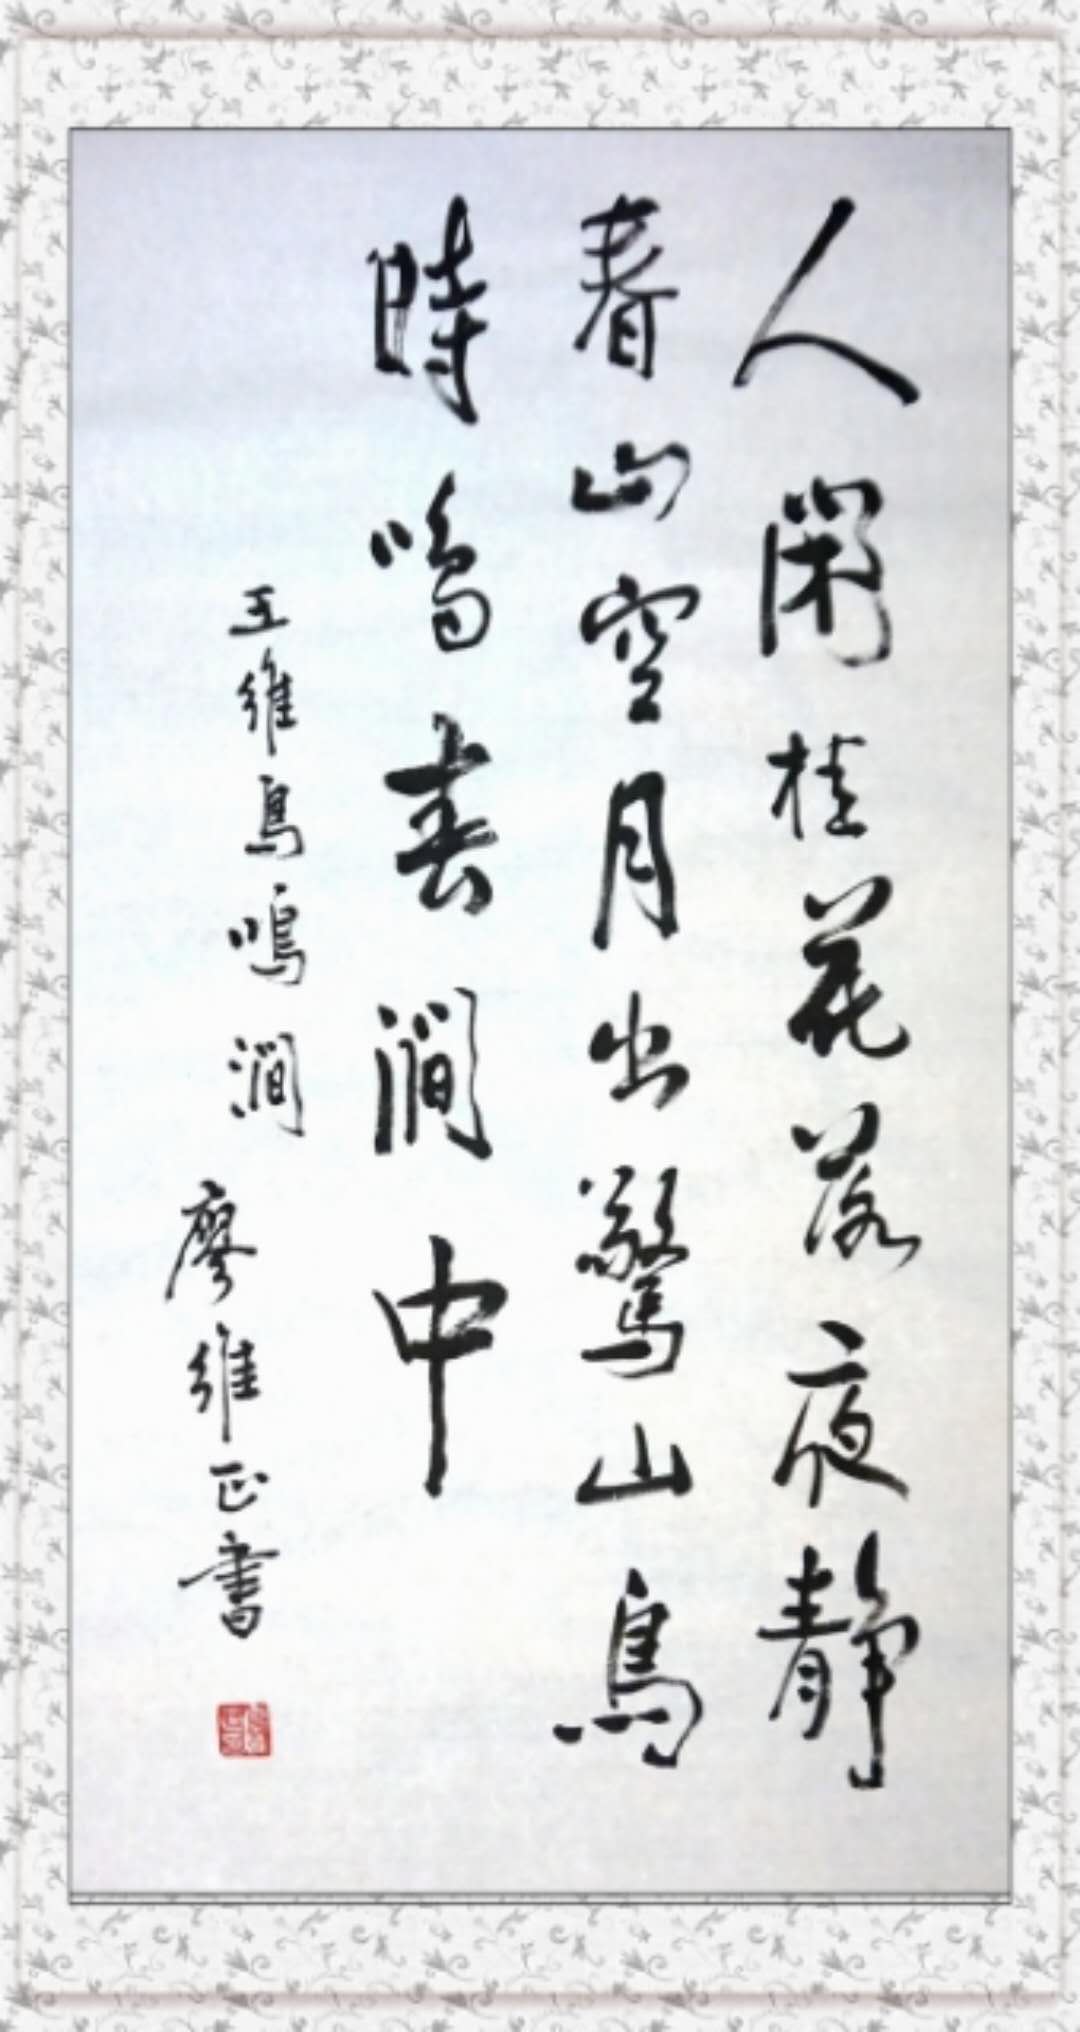 人閑桂花落夜靜
春山空月出驚山鳥
時鳴春澗中
王維鳥鳴澗
廖維正書